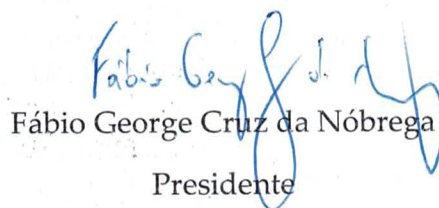 Fábio Geo
Fábio George Cruz da Nóbrega
Presidente